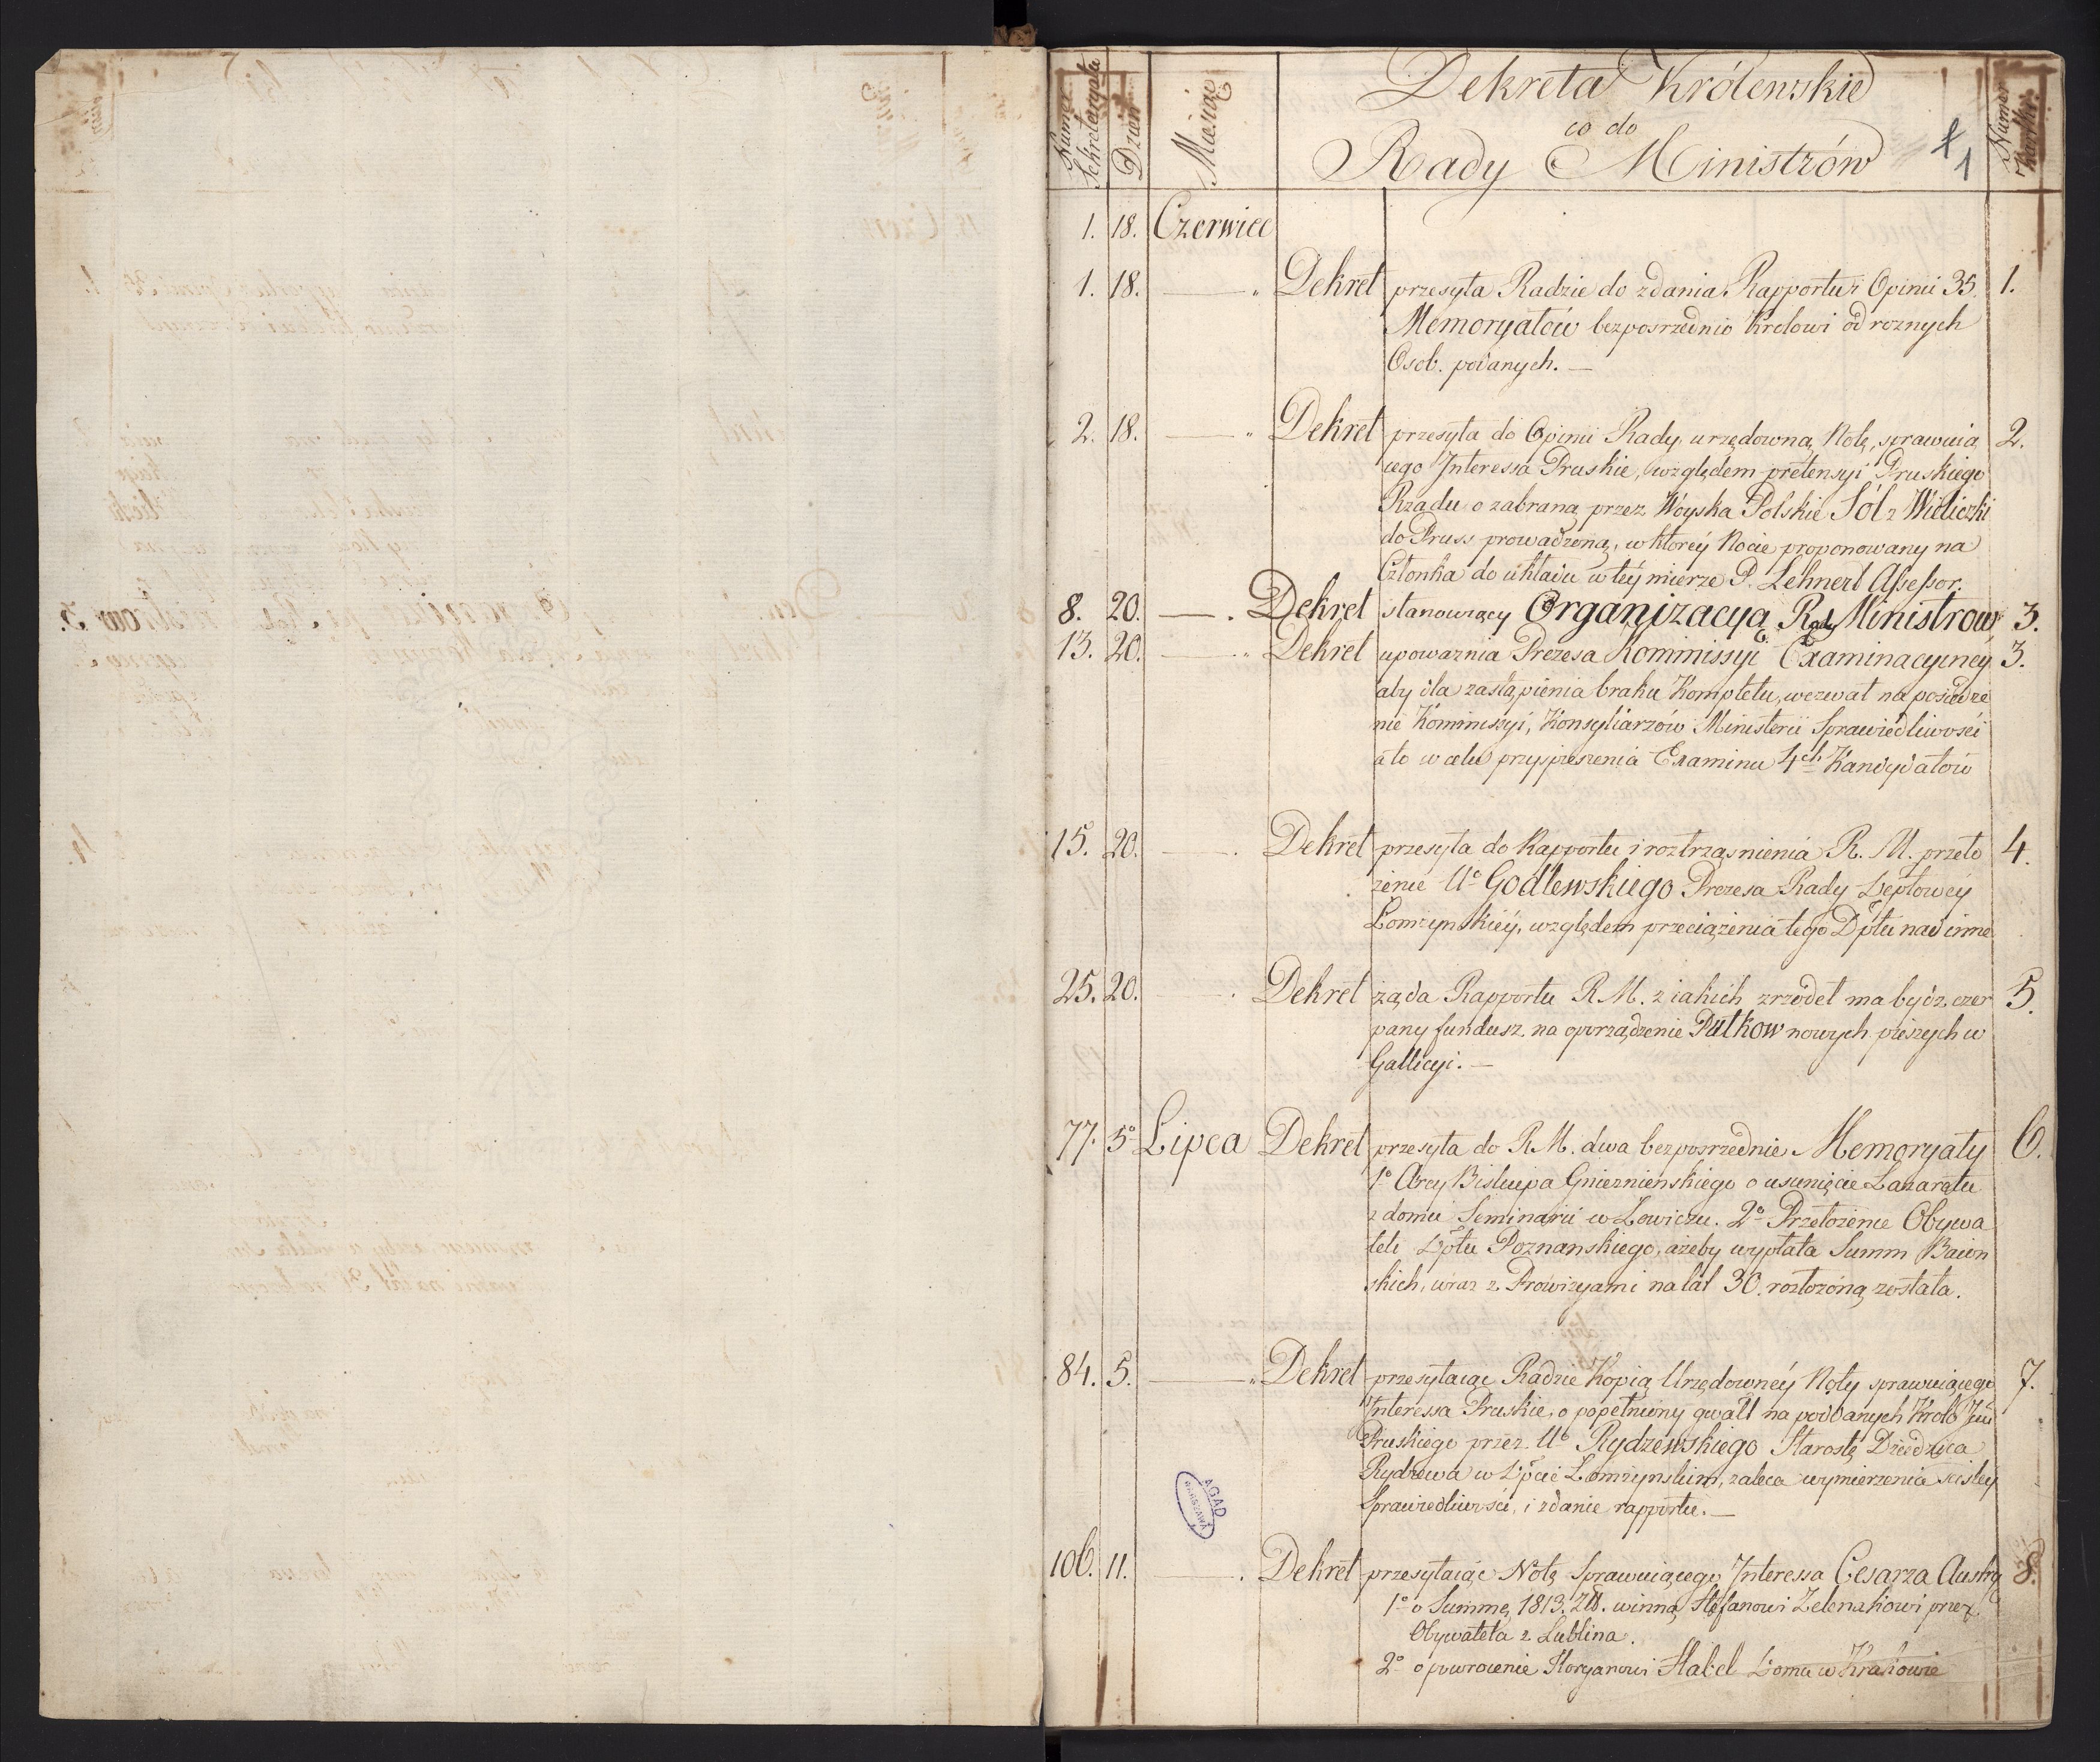 Numer Sekretaryatu
Dzień
Miesiąc
Dekreta Królewskie
co do
Rady Ministrów
1
Numer Kartki
1. 18. Czerwiec
1. 18. — „ Dekret przesyła Radzie do zdania Rapportu i Opinii 35. 1.
Memoryałów bezposrzednio Krolowi od roznych
Osob. podanych. —
2. 18. — „ Dekret przesyła do Opinii Rady, urzędowną Notę, sprawuią 2.
cego Interessa Pruskie, względem pretensyi Pruskiego
Rządu o zabraną przez Woyska Polskie Sól z Wieliczki
do Pruss prowadzoną, w ktorey Nocie proponowany na
Członka do układu w tey mierze P. Lehnert Assessor.
8. 20. — . Dekret stanowiący Organizacyą Rady Ministrow 3.
13. 20. — „ Dekret upoważnia Prezesa Kommissyi Examinacyiney 3.
aby dla zastąpienia braku Kompletu, wezwał na posiedze
nie Kommissyi, Konsyliarzów Ministerii Sprawiedliwości
a to w celu przyspieszenia Examinu 4ch Kandydatów
15. 20. — . Dekret przesyła do Rapportu i roztrząsnienia R. M. przeło 4.
żenie Uo Godlewskiego Prezesa Rady Deptowey
Łomżynskiey, względem przeciążenia tego Dptu nad inne
25. 20. — . Dekret żąda Rapportu R M. z iakich zrzodeł ma bydz czer 5.
pany fundusz na oporządzenie Pułkow nowych pieszych w
Gallicyi. —
77. 5o Lipca Dekret przesyła do R M. dwa bezposrzednie Memoryały 6.
1o Arcy Biskupa Gnieznienskiego o usunięcie Lazaretu
z domu Seminarii w Łowiczu. 2o Przełożenie Obywa
teli Dptu Poznanskiego, ażeby wypłata Summ Baion
skich, wraz z Prowizyami na lat 30. rozłożoną została.
84. 5. — „ Dekret przesyłaiąc Radzie Kopią Urzędowney Noty sprawuiącego 7.
Interessa Pruskie, o popełniony gwałt na poddanych Króla Jmci
Pruskiego przez Uo Rydzewskiego Starostę Dziedzica
Rydzewa w Dpcie Łomżynskim, zaleca wymierzenia scisłey
Sprawiedliwości, i zdanie rapportu. —
AGAD
WARSZAWA
106. 11. — . Dekret przesyłaiąc Notę Sprawuiącego Interessa Cesarza Austry 8.
1o o Summę 1813. winną Stefanowi przez
Obywatela z Lublina.
2o o powrocenie Floryanowi Domu w Krakowie